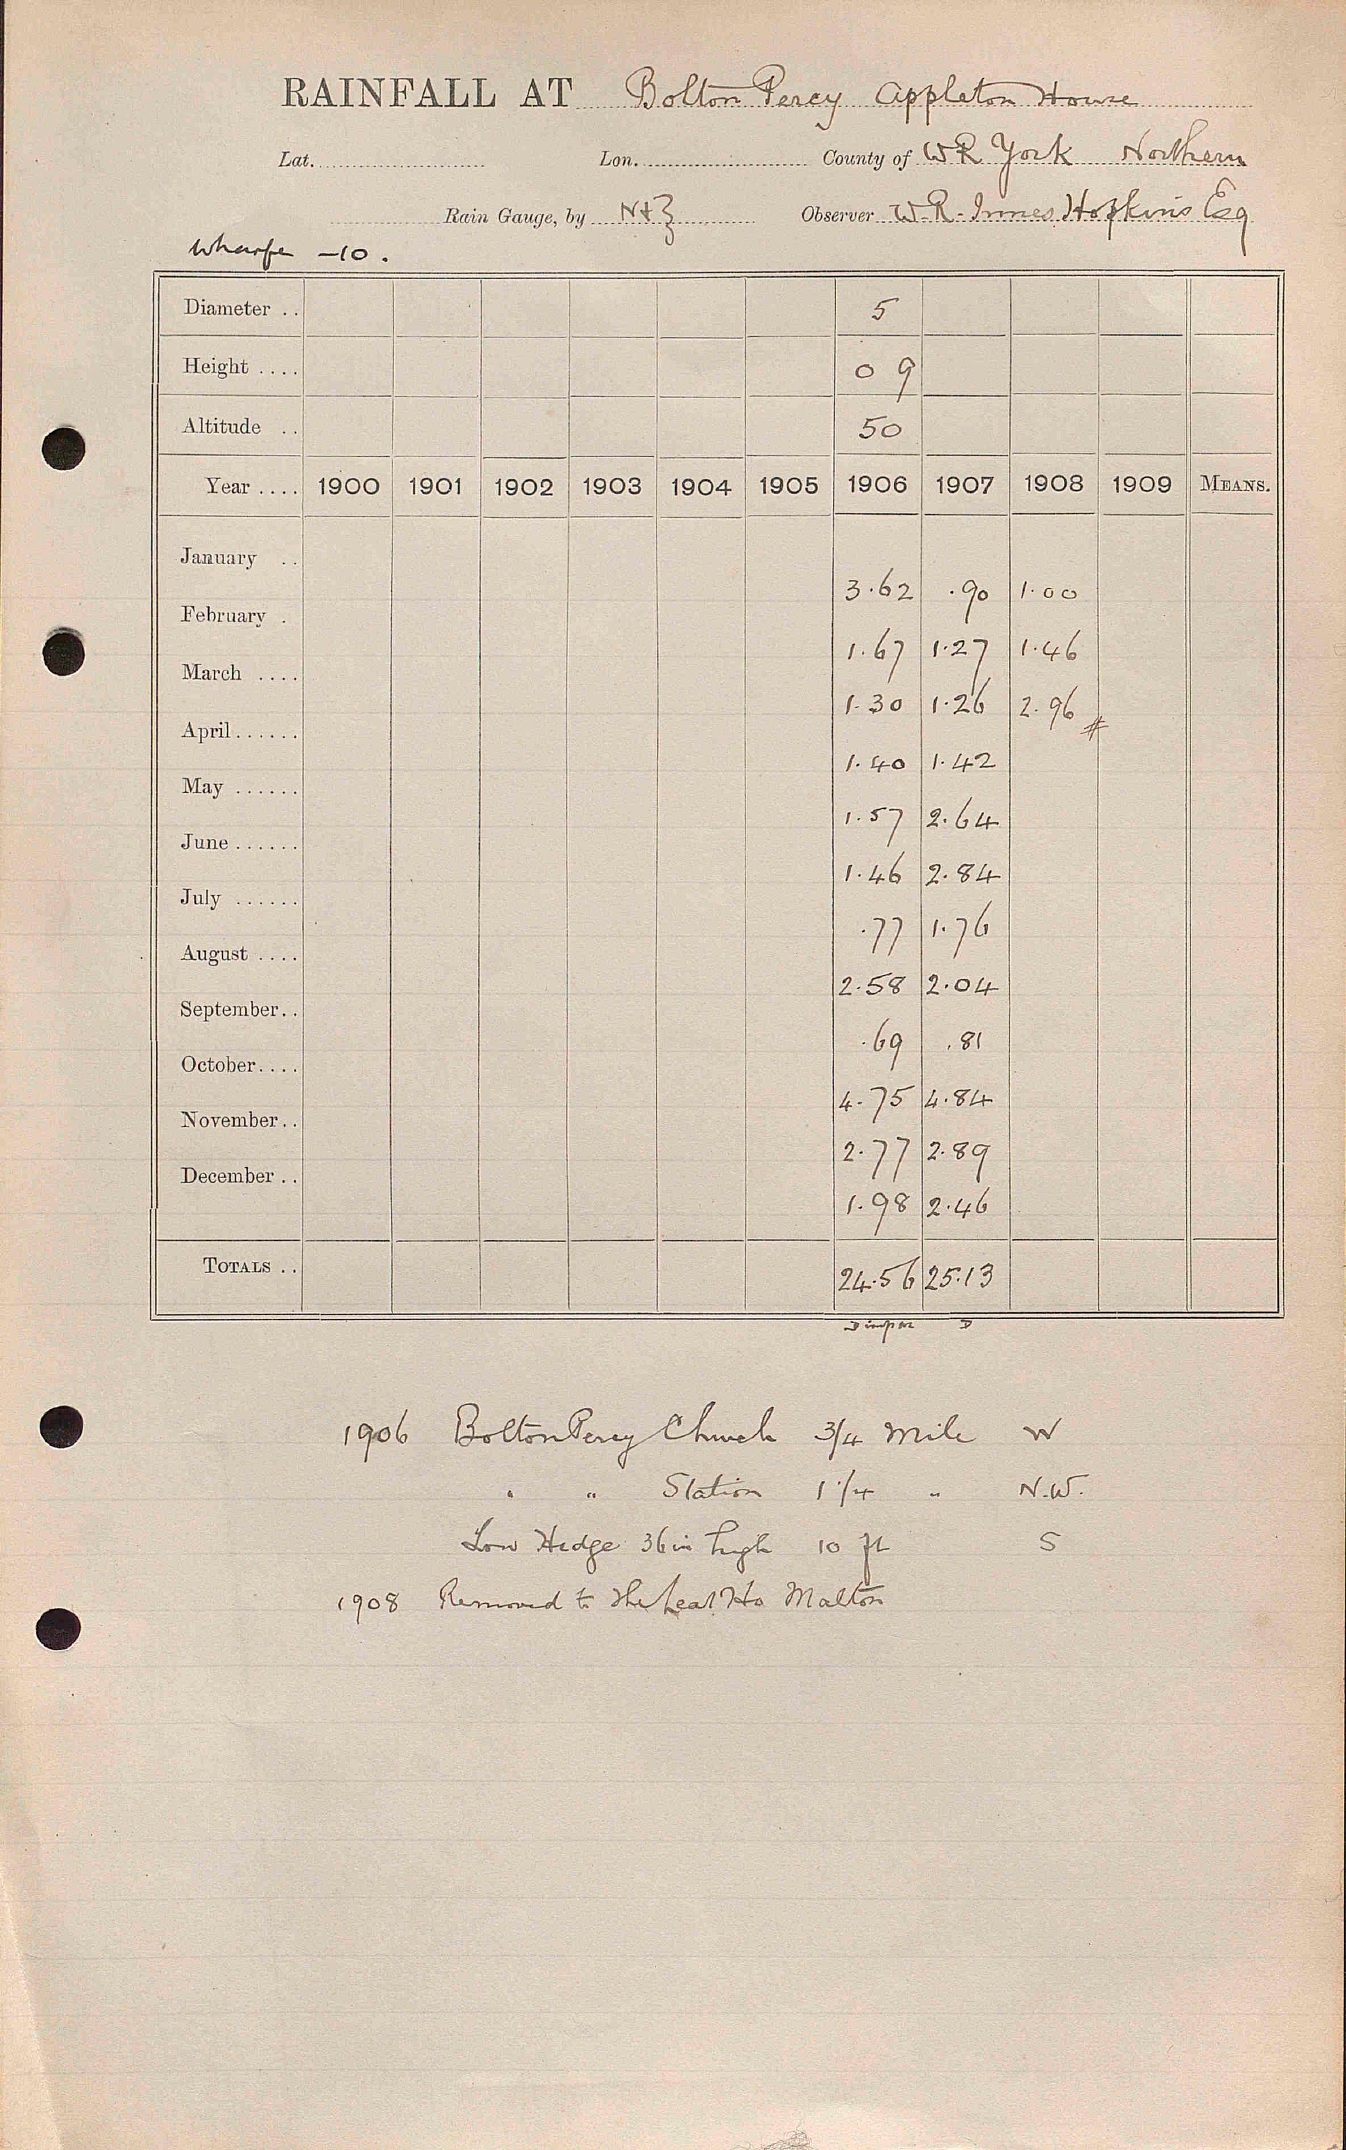 RAINFALL AT Bolton Percy Appleton House
Lat. Lon. County of WR York Northern
Rain Gauge, by N+Z Observer W. R. Innes Hopkins Esq
Wharfe -10.
Diameter .. 5
Height .... 0 9
Altitude .. 50
Year .... 1900 1901 1902 1903 1904 1905 1906 1907 1908 1909 MEANS.
January .. 3.62 .90 1.00
February . 1.67 1.27 1.46
March .... 1.30 1.26 2.96 #
April ...... 1.40 1.42
May ...... 1.57 2.64
June ...... 1.46 2.84
July ...... .77 1.76
August .... 2.58 2.04
September.. .69 .81
October.... 4.75 4.84
November.. 2.77 2.89
December .. 1.98 2.46
TOTALS .. 24.56 25.13
D D
1906 Bolton Percy Church 3/4 Mile W
" " Station 1 1/4 " N.W.
Low Hedge 36 in high 10 ft S
1908 Removed to The Ho Malton